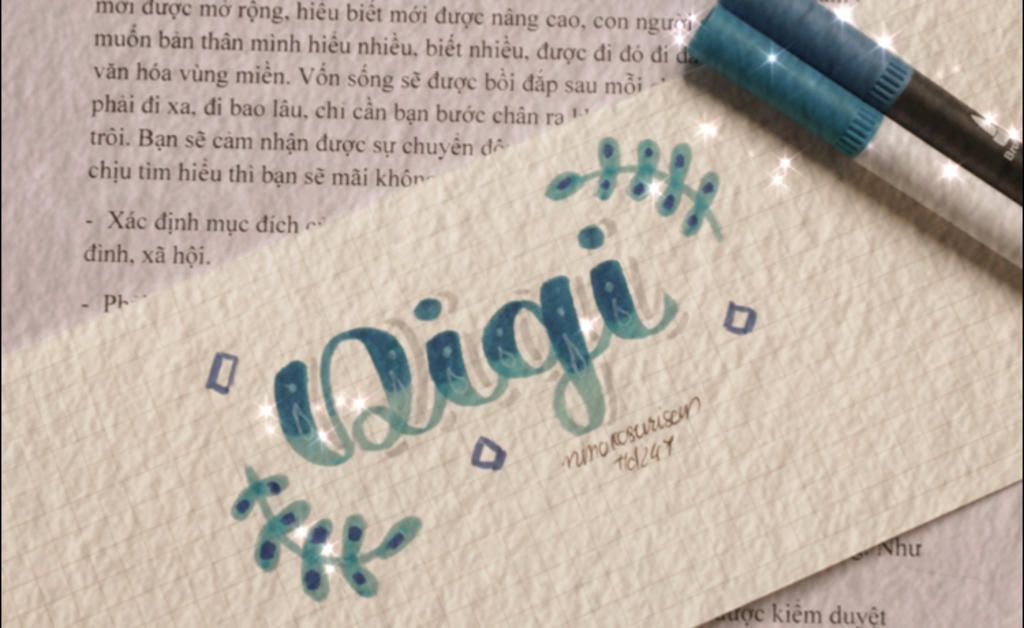 mới được mở rộng, hiểu biết mới được nâng cao, con người
muốn bản thân mình hiểu nhiều, biết nhiều, được đi đó đi
văn hóa vùng miền. Vốn sống sẽ được bồi đắp sau mỗi
phải đi xa, đi bao lâu, chỉ cần bạn bước chân ra
trôi. Bạn sẽ cảm nhận được sự chuyển
chịu tìm hiểu thì bạn sẽ mãi không
- Xác định mục đích
đình, xã hội.
-
Qigi
Như
được kiểm duyệt